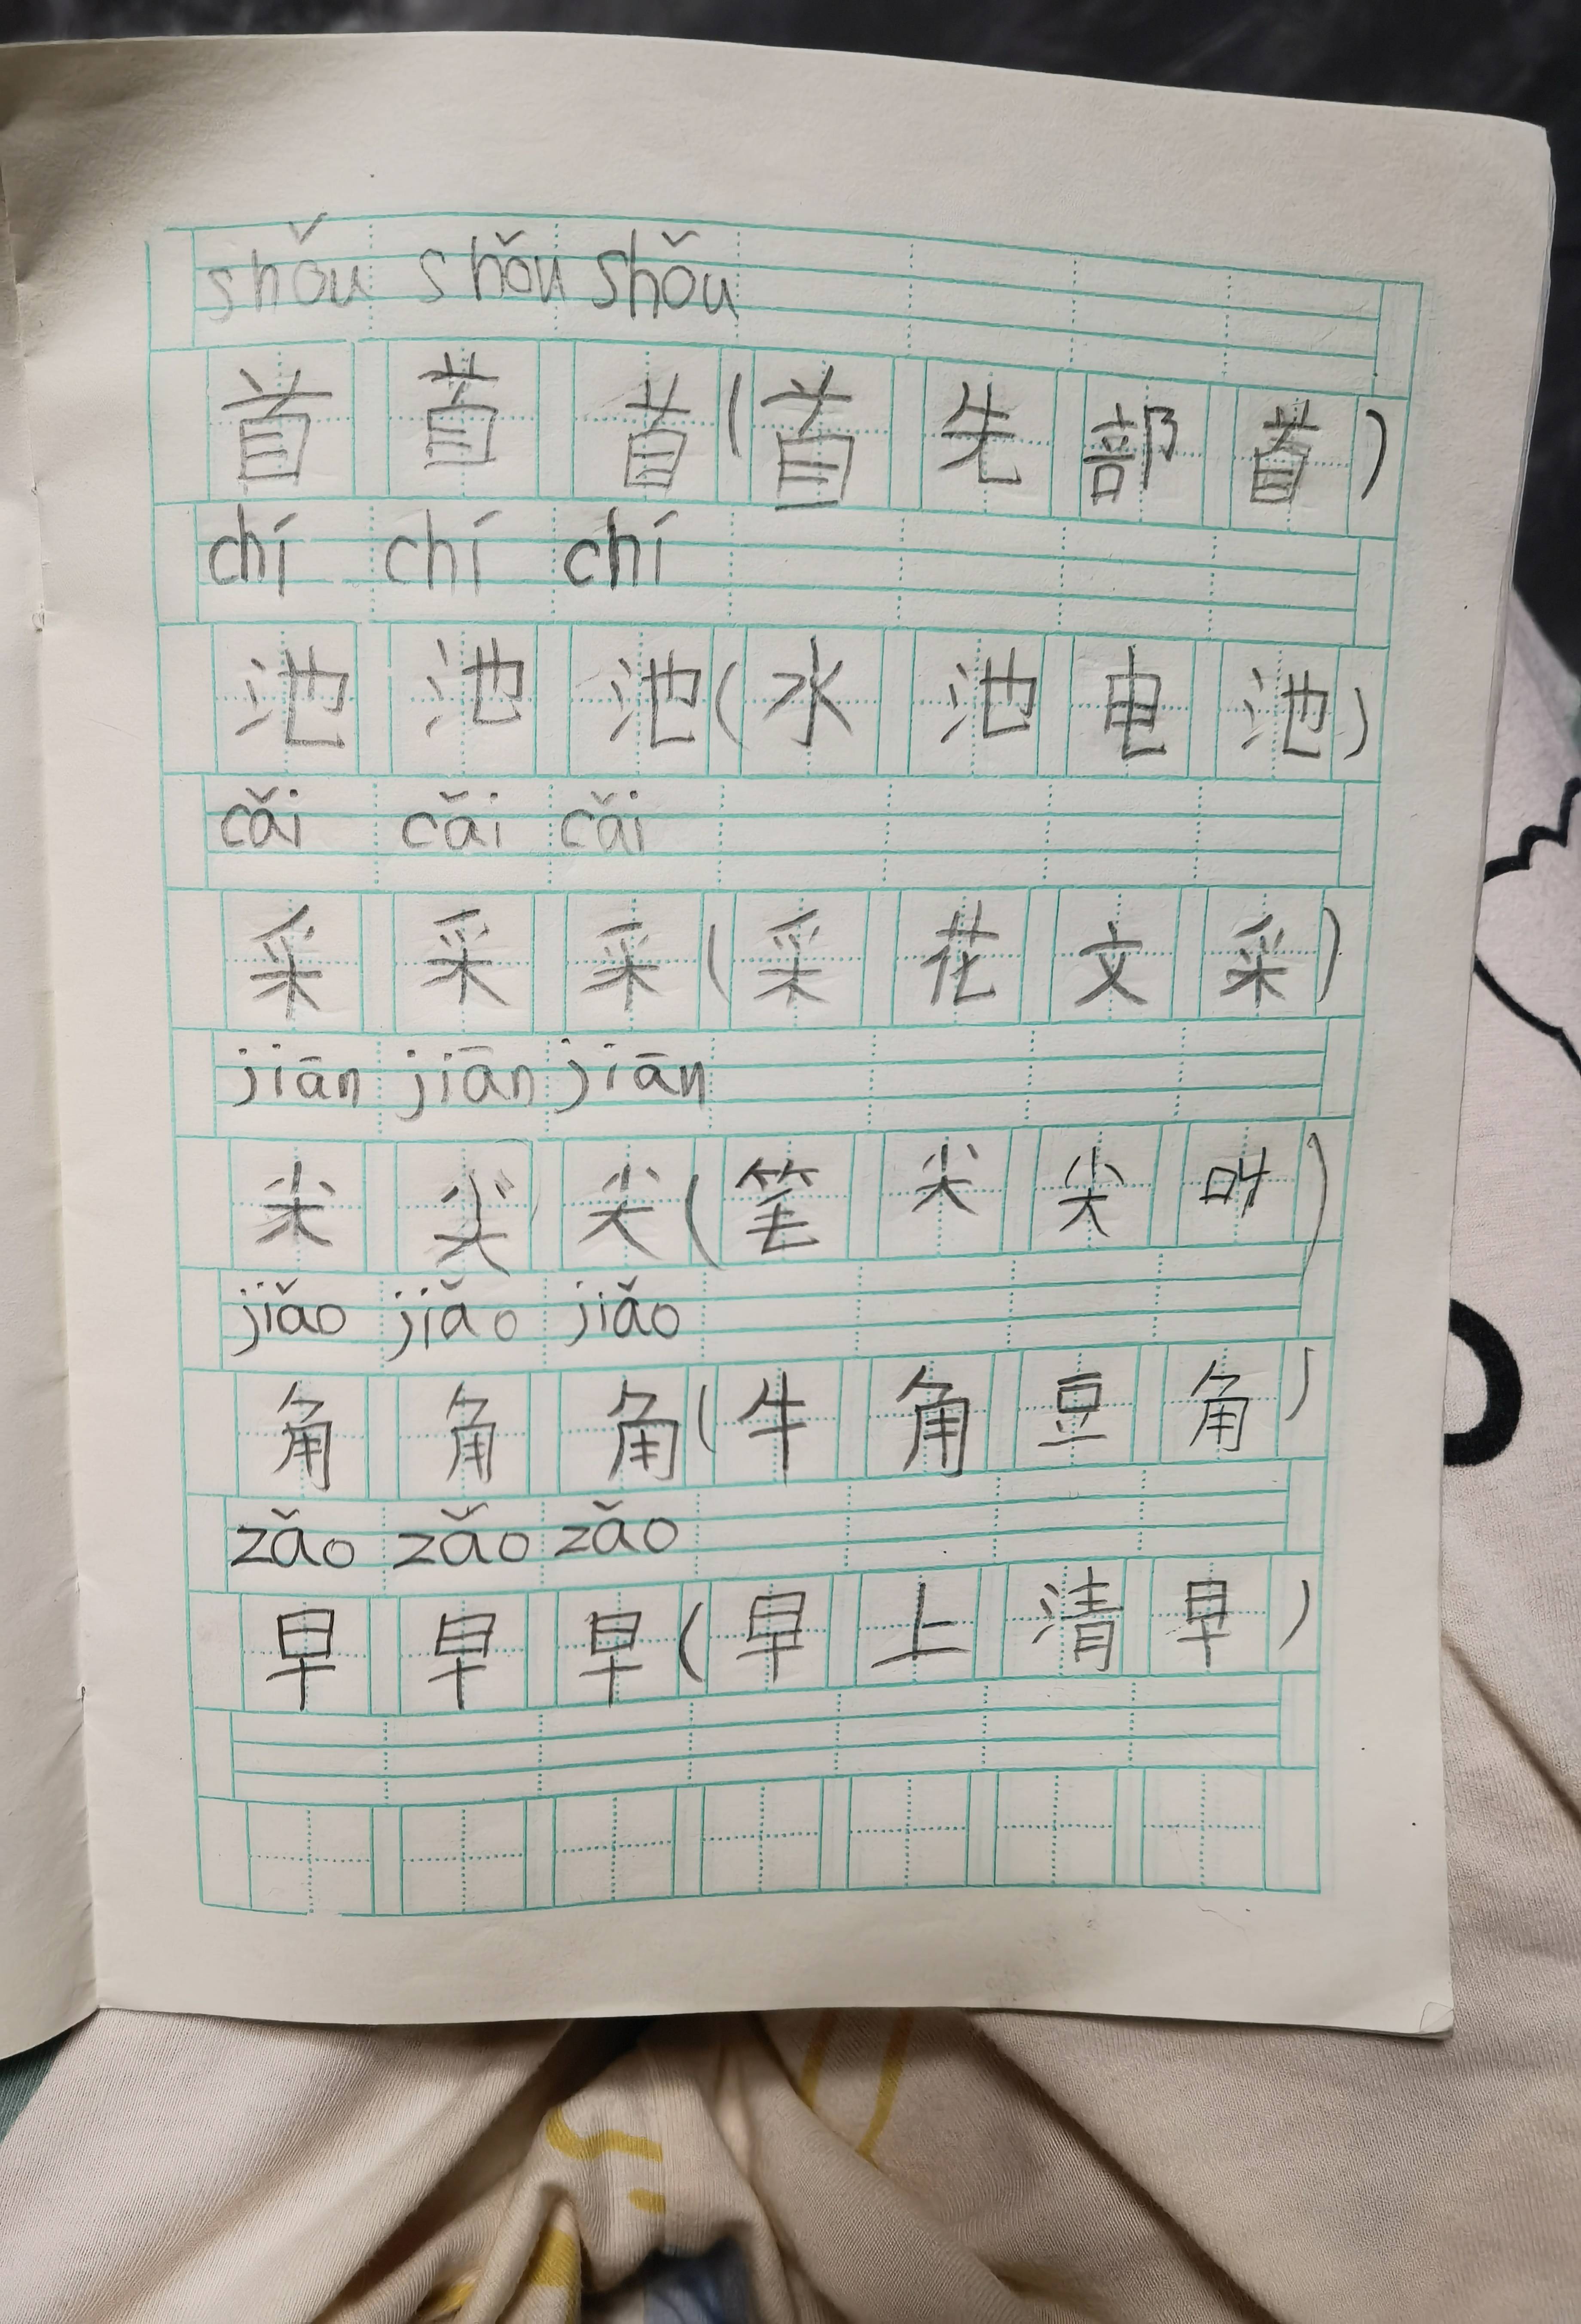 shǒu shǒu shǒu
首 首 首 ( 首 先 部 首 )
chí chí chí
池 池 池 ( 水 池 电 池 )
cǎi cǎi cǎi
采 采 采 ( 采 花 文 采 )
jiān jiān jiān
尖 尖 尖 ( 笔 尖 尖 叫 )
jiǎo jiǎo jiǎo
角 角 角 ( 牛 角 豆 角 )
zǎo zǎo zǎo
早 早 早 ( 早 上 清 早 )